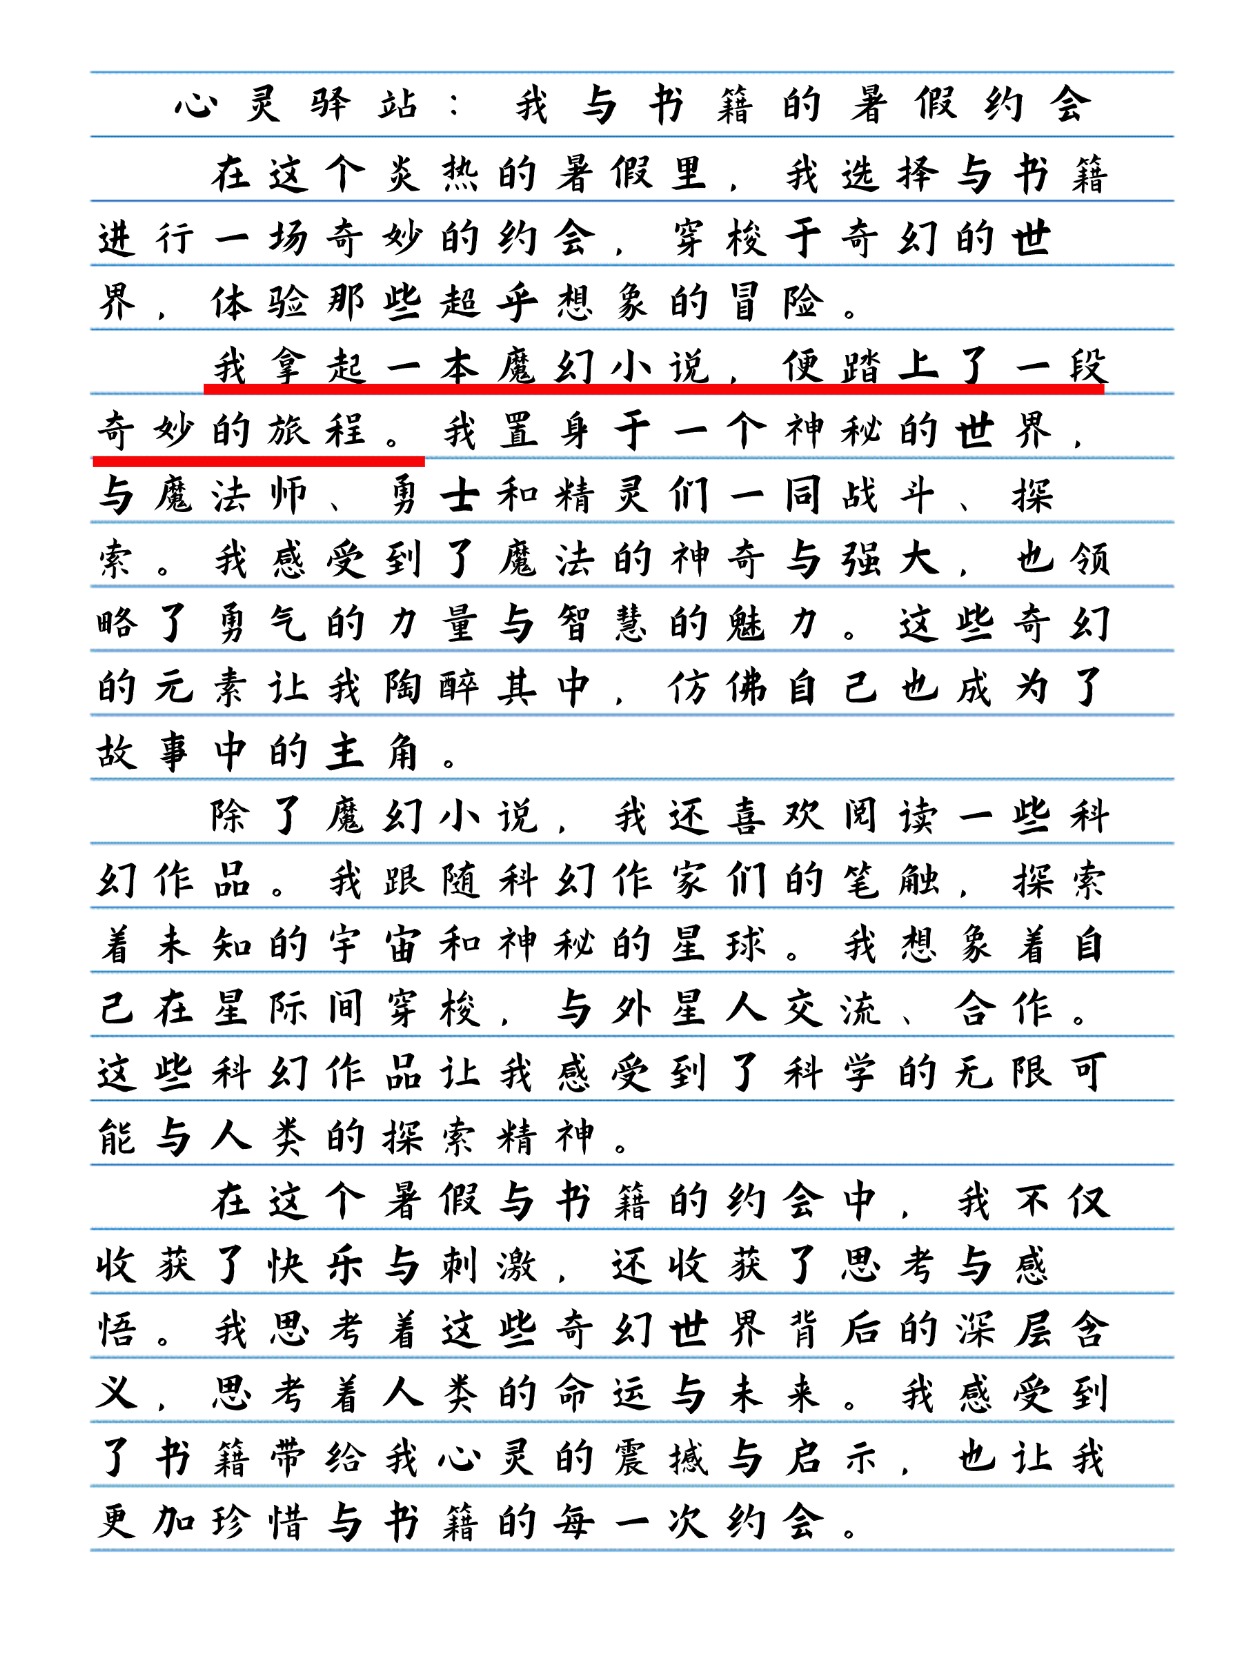 心灵驿站：我与书籍的暑假约会
在这个炎热的暑假里，我选择与书籍
进行一场奇妙的约会，穿梭于奇幻的世
界，体验那些超乎想象的冒险。
我拿起一本魔幻小说，便踏上了一段
奇妙的旅程。我置身于一个神秘的世界，
与魔法师、勇士和精灵们一同战斗、探
索。我感受到了魔法的神奇与强大，也领
略了勇气的力量与智慧的魅力。这些奇幻
的元素让我陶醉其中，仿佛自己也成为了
故事中的主角。
除了魔幻小说，我还喜欢阅读一些科
幻作品。我跟随科幻作家们的笔触，探索
着未知的宇宙和神秘的星球。我想象着自
己在星际间穿梭，与外星人交流、合作。
这些科幻作品让我感受到了科学的无限可
能与人类的探索精神。
在这个暑假与书籍的约会中，我不仅
收获了快乐与刺激，还收获了思考与感
悟。我思考着这些奇幻世界背后的深层含
义，思考着人类的命运与未来。我感受到
了书籍带给我心灵的震撼与启示，也让我
更加珍惜与书籍的每一次约会。